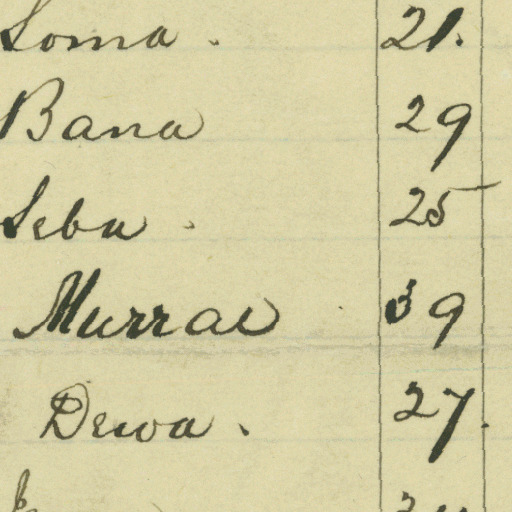 Soma . 21.
Bana 29
Seba . 25
Murrae . 39
Dewa . 27.